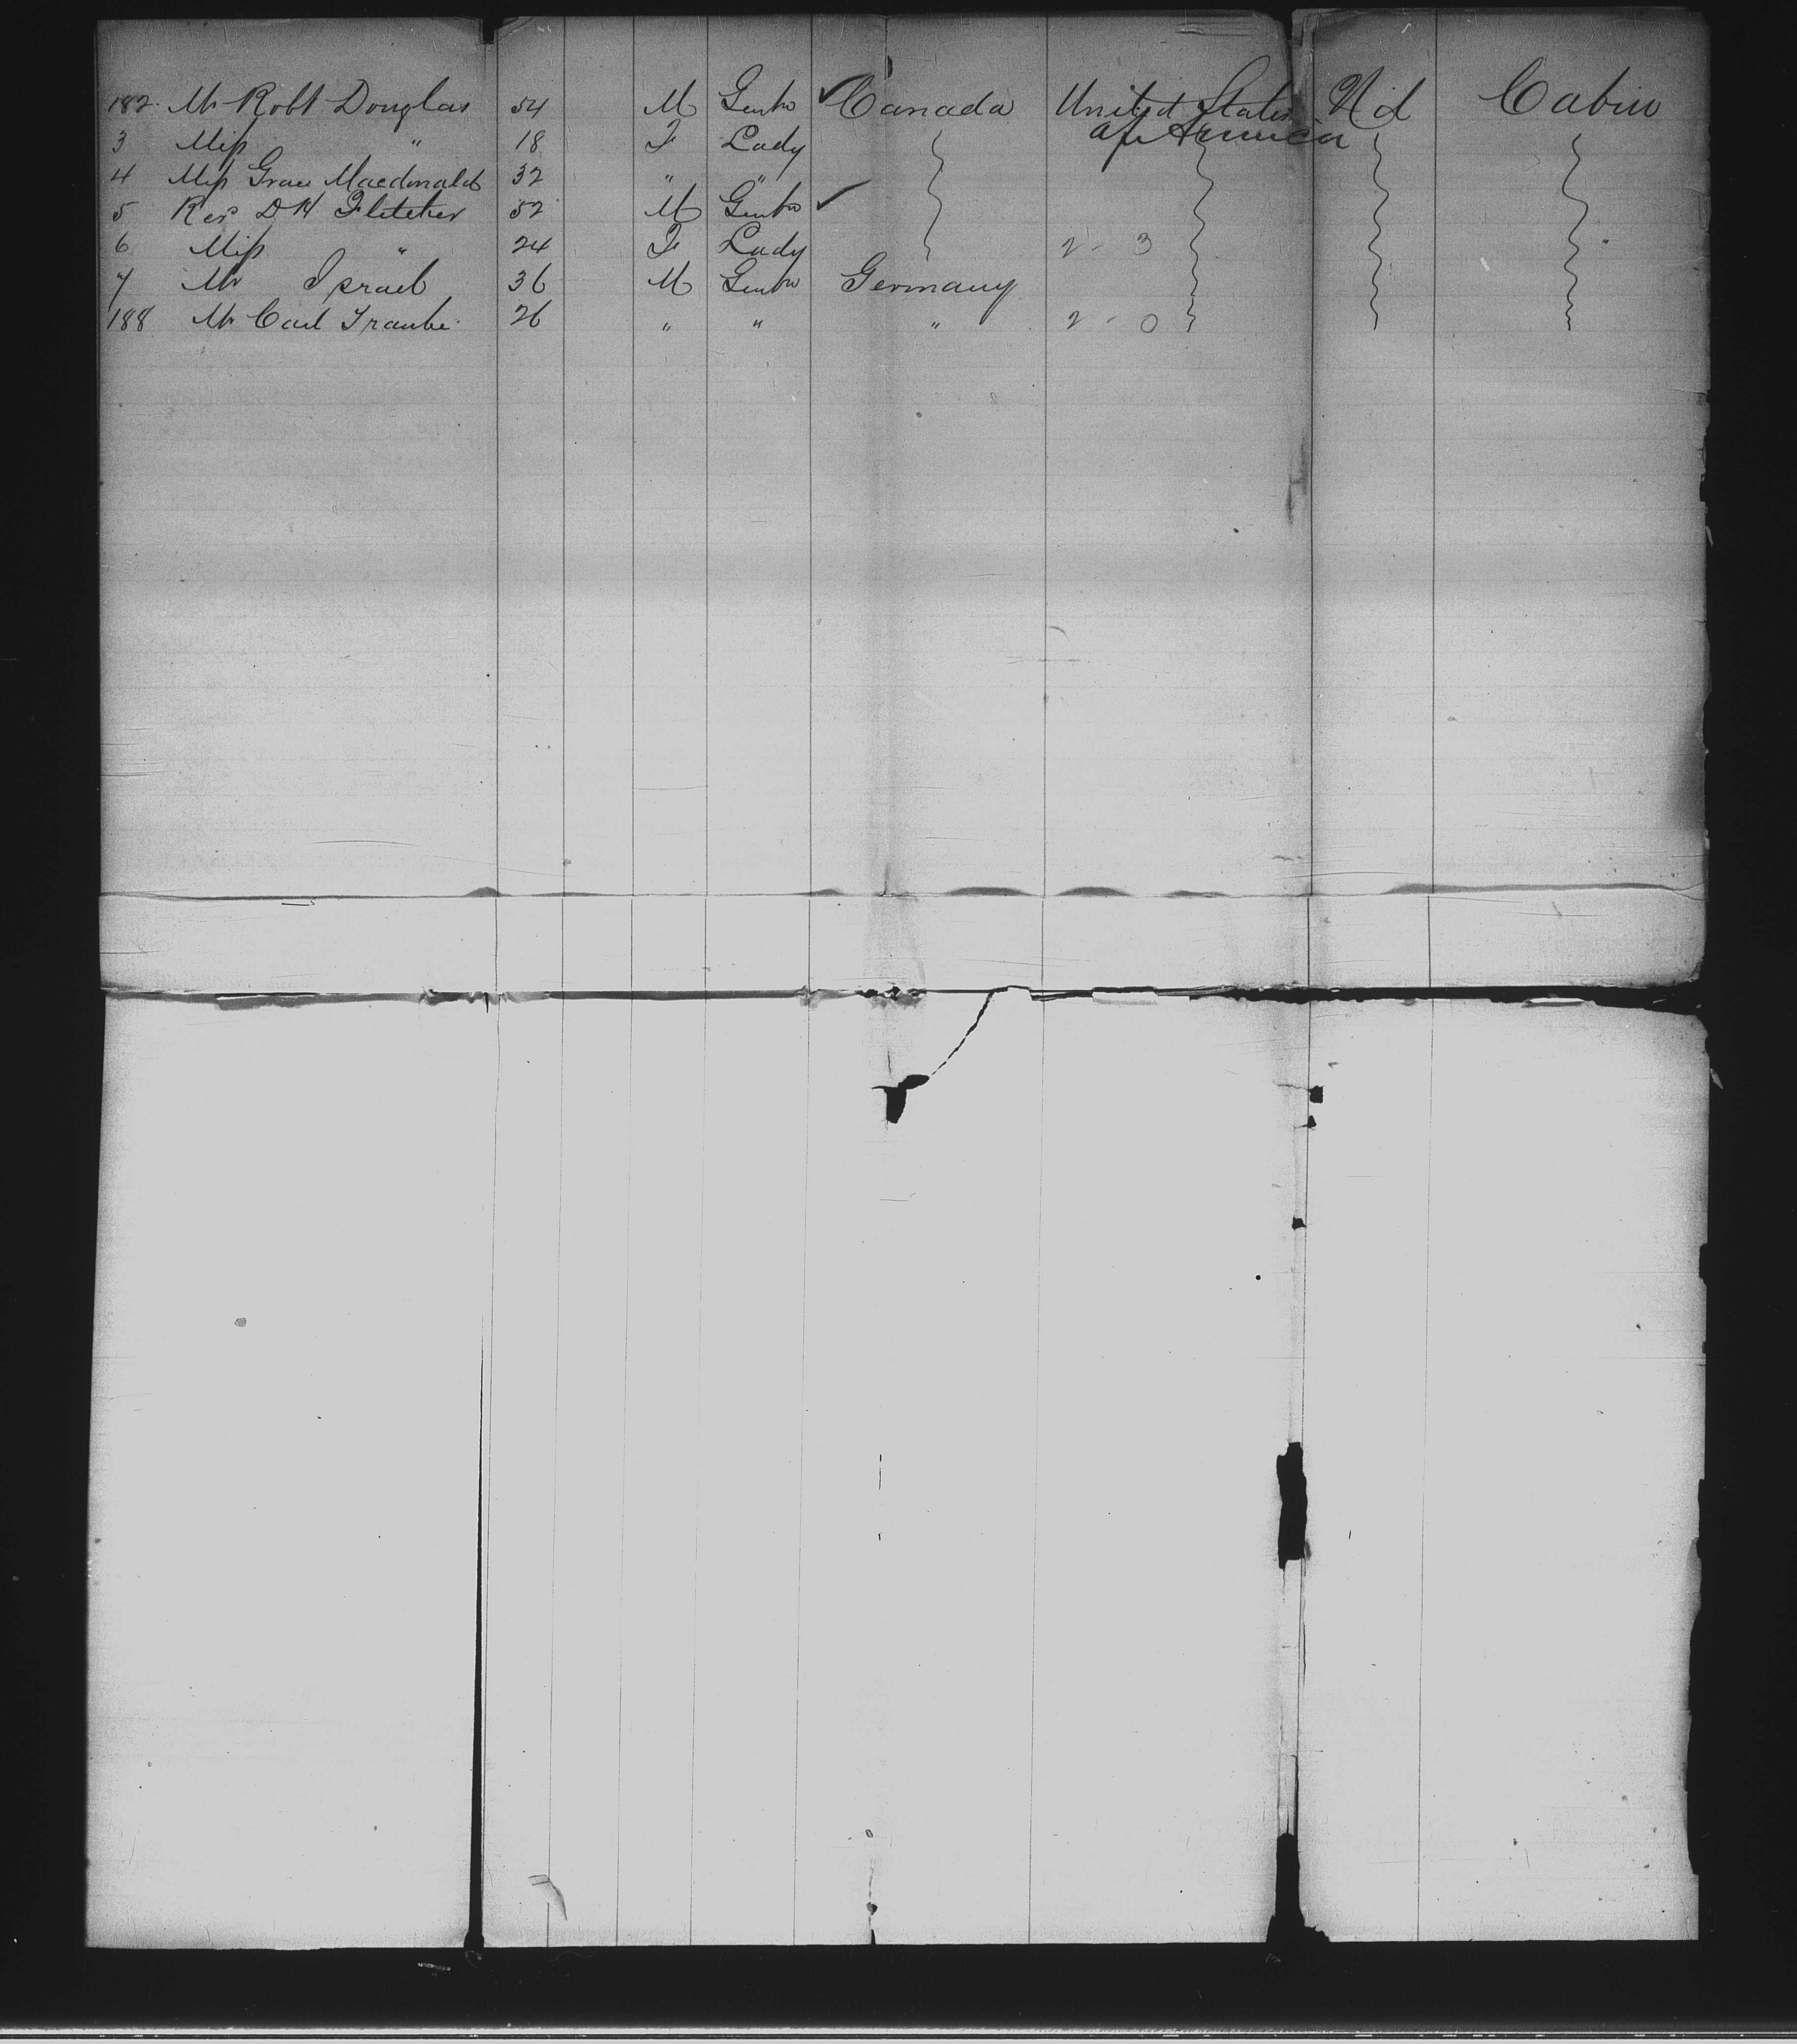 182. Mr Robt Douglas 54 M Gentn ✓ Canada United States Nd Cabin
of America
3 Miss " 18 F Lady
4 Miss Grace Macdonald 32 " "
5 Rev D H Fletcher 52 M Gentn ✓
6 Miss " 24 F Lady 2 - 3
7 Mr Israel 36 M Gentn Germany
188 Mr Carl Traube 26 " " " 2 - 0